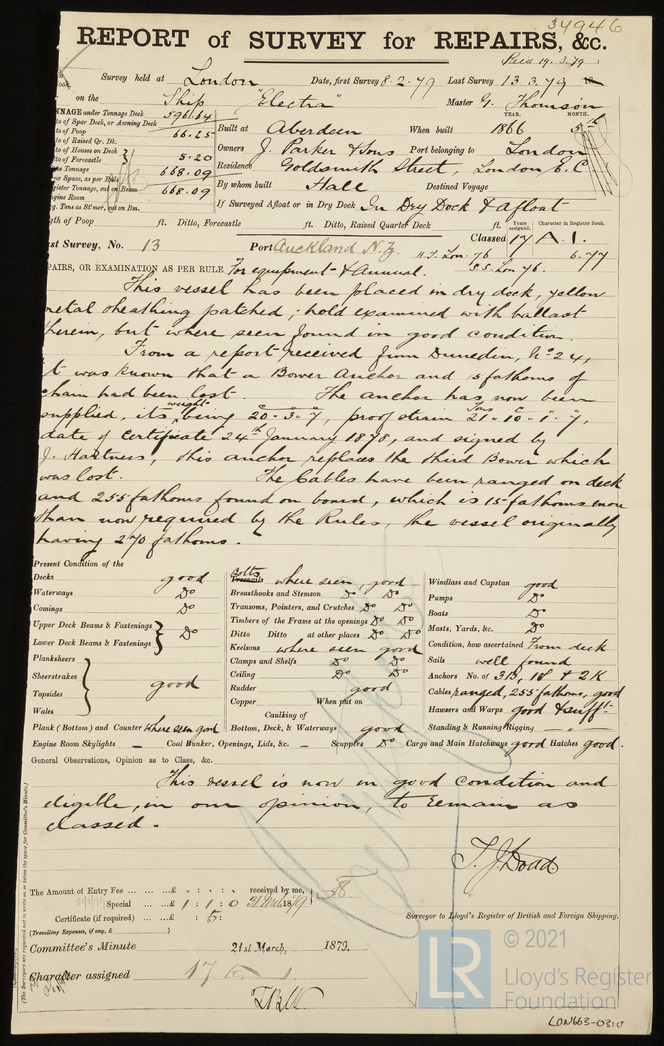 34946
REPORT of SURVEY for REPAIRS, &c.
Paid 19.3.79
Survey held at London Date, first Survey 8.2.79 Last Survey 13.3.79 18
on the Ship "Electra" Master G. Thomson
NNAGE under Tonnage Deck 596.64
to of Spar Deck, or Awning Deck
to of Poop 66.25
to of Raised Qr. Dk.
to of Houses on Deck
to of Forecastle 5.20
ss Tonnage 668.09
w Space, as per Rule
egister Tonnage, cut on Beam 668.09
Engine Room
g. Tons as St'mer, cut on Bm.
YEAR. MONTH.
Built at Aberdeen When built 1866 5th
Owners J. Parker & Sons Port belonging to London
Residence Goldsmith Street, London E.C.
By whom built Hall Destined Voyage
If Surveyed Afloat or in Dry Dock In Dry Dock & afloat
gth of Poop ft. Ditto, Forecastle ft. Ditto, Raised Quarter Deck ft.
Years assigned. Character in Register Book.
st Survey, No. 13 Port Auckland N.Z. Classed 17 A.1.
Lon 76 6.77
S.S. Lon 76.
PAIRS, OR EXAMINATION AS PER RULE, For equipment & Annual.
This vessel has been placed in dry dock, yellow
metal sheathing patched; hold examined with ballast
therein, but where seen found in good condition.
From a report received from Dunedin, No 24,
it was known that a Bower Anchor and 5 fathoms of
chain had been lost. The anchor has now been
supplied, its weight being 20-3-7, proof strain Tons 21-10-1-7,
date of certificate 24th January 1878, and signed by
J. Hartness, this anchor replaces the third Bower which
was lost. The Cables have been ranged on deck
and 255 fathoms found on board, which is 15 fathoms more
than now required by the Rules, the vessel originally
having 270 fathoms.
Present Condition of the
Decks good
Waterways Do
Comings Do
Upper Deck Beams & Fastenings
Lower Deck Beams & Fastenings Do
Planksheers
Sheerstrakes
Topsides
Wales good
Plank (Bottom) and Counter where seen good
Bolts Treenails where seen, good
Breasthooks and Stemson Do Do
Transoms, Pointers, and Crutches Do Do
Timbers of the Frame at the openings Do Do
Ditto Ditto at other places Do Do
Keelsons where seen good
Clamps and Shelfs Do Do
Ceiling Do Do
Rudder good
Copper When put on
Caulking of
Bottom, Deck, & Waterways good
Windlass and Capstan good
Pumps Do
Boats Do
Masts, Yards, &c. Do
Condition, how ascertained From deck
Sails well found
Anchors No. of 3B, 1S & 2K
Cables ranged, 255 fathoms, good
Hawsers and Warps good & sufft.
Standing & Running Rigging — " —
Engine Room Skylights — Coal Bunker, Openings, Lids, &c. — Scuppers Do Cargo and Main Hatchways good Hatches good.
General Observations, Opinion as to Class, &c.
This vessel is now in good condition and
eligible, in our opinion, to remain as
classed.
T. J. Dodd
The Amount of Entry Fee ... ... ...£ : : received by me,
Special ... ...£ 1 : 1 : 0 1879
Certificate (if required) ...£ : 5 :
(Travelling Expenses, if any, £ )
Surveyor to Lloyd's Register of British and Foreign Shipping.
Committee's Minute 21st March, 1879.
Character assigned 17 A 1
(The Surveyors are requested not to write on or below the space for Committee's Minute.)
LR
© 2021
Lloyd's Register
Foundation
LON663-0310